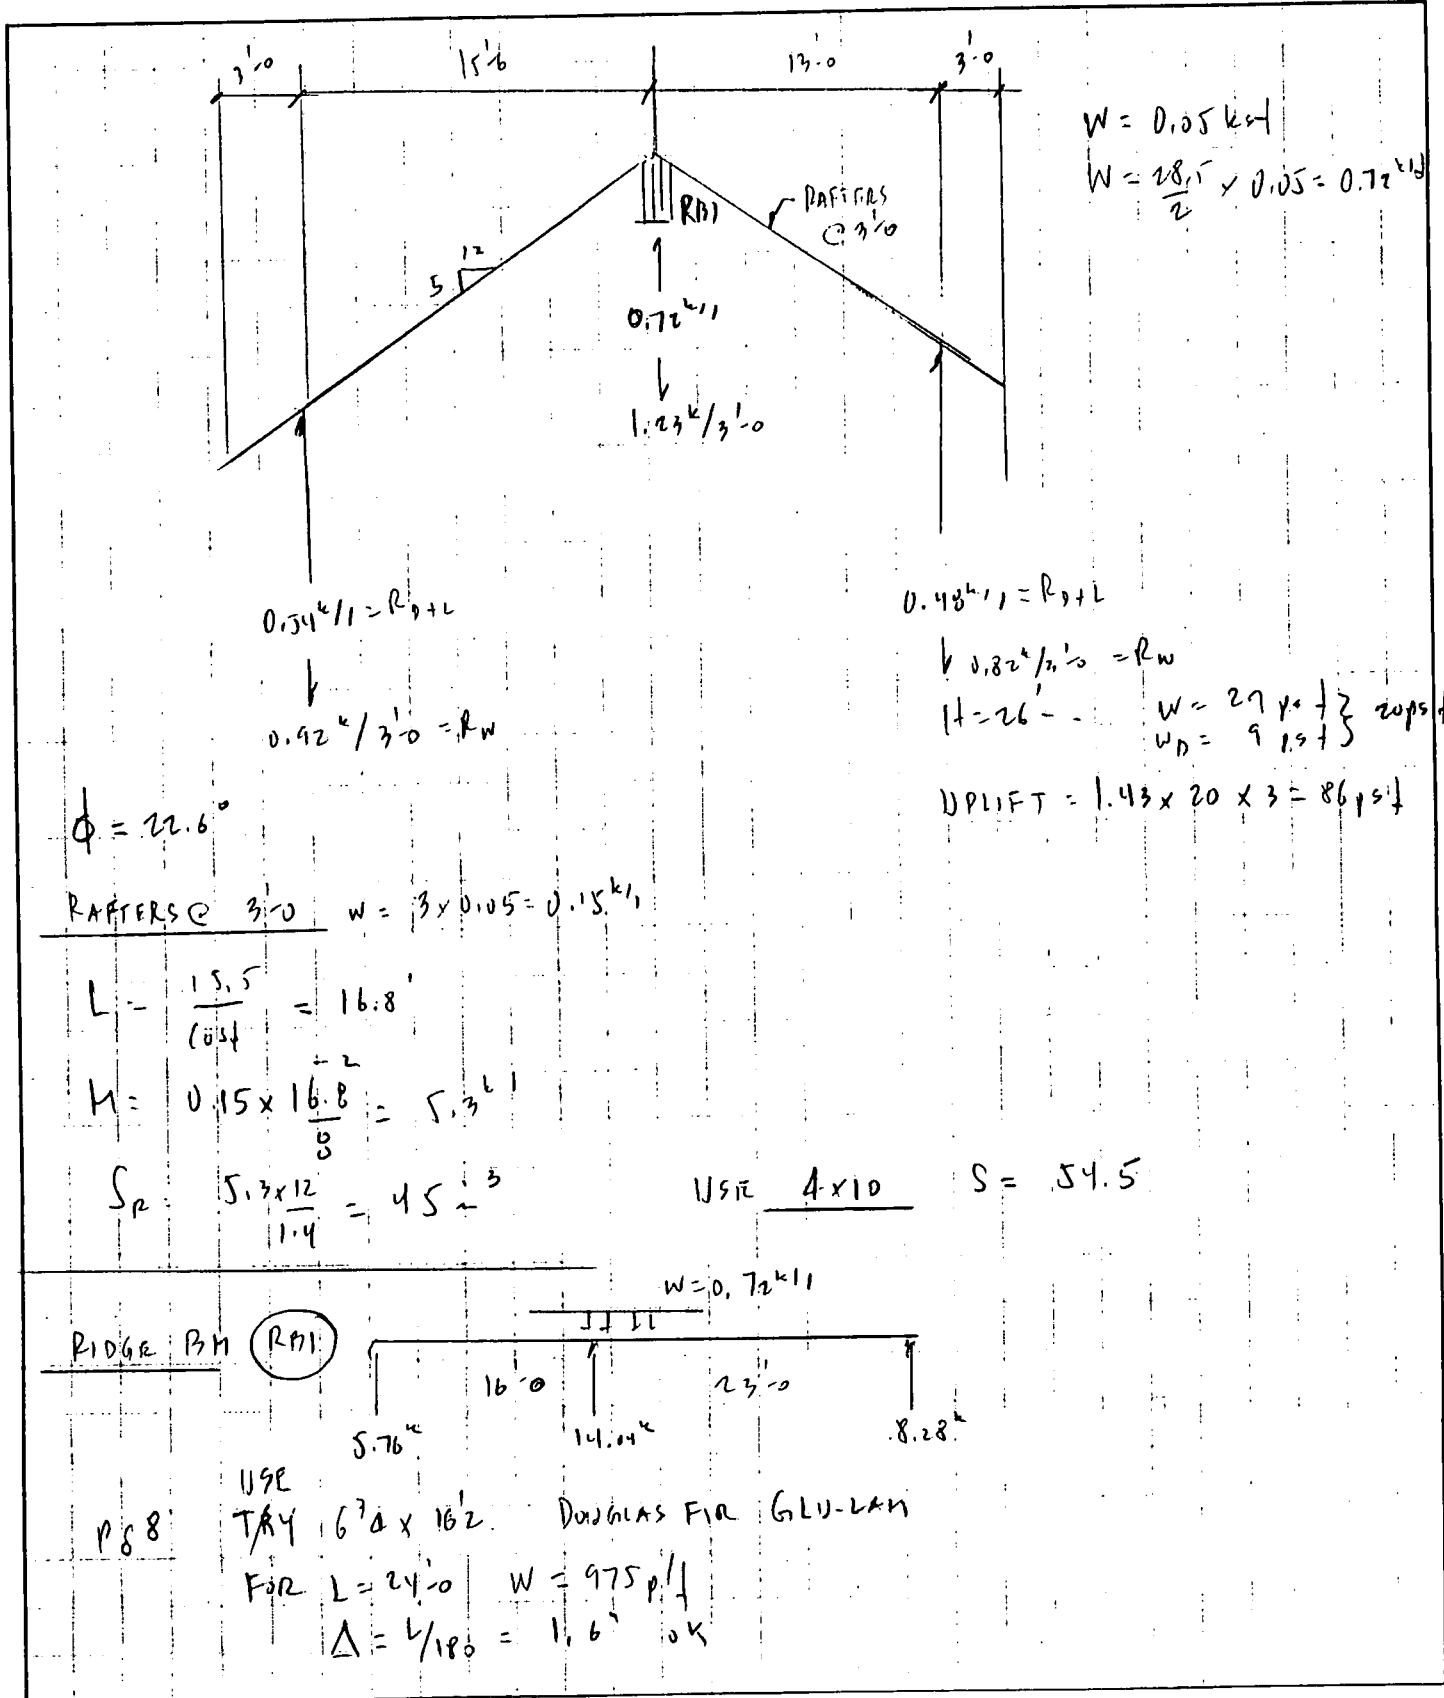 3'-0 15'-6 13'-0 3'-0
W = 0.05 ksf
W = 28.5/2 x 0.05 = 0.72 k/f
RAFTERS
@ 3'-0
RB1
12
5
0.72 k/'
1.23 k/3'-0
0.54 k/' = R D+L
0.92 k/3'-0 = Rw
0.48 k/' = R D+L
0.82 k/3'-0 = Rw
H = 26'
W = 29 psf } 20 psf
WD = 9 psf
UPLIFT = 1.43 x 20 x 3 = 86 psf
ϕ = 22.6°
RAFTERS @ 3'-0 w = 3 x 0.05 = 0.15 k/'
L = 15.5/cosϕ = 16.8'
M = 0.15 x 16.8²/8 = 5.3 k'
SR = 5.3x12/1.4 = 45 in³ USE 4x10 S = 54.5
W = 0.72 k/'
RIDGE BM RB1
16'-0 23'-0
5.76 k 14.04 k 8.28 k
USE
Pg 8 TRY 6 3/4 x 16 1/2 DOUGLAS FIR GLU-LAM
FOR L = 24'-0 W = 975 p/f
Δ = L/180 = 1.6" OK